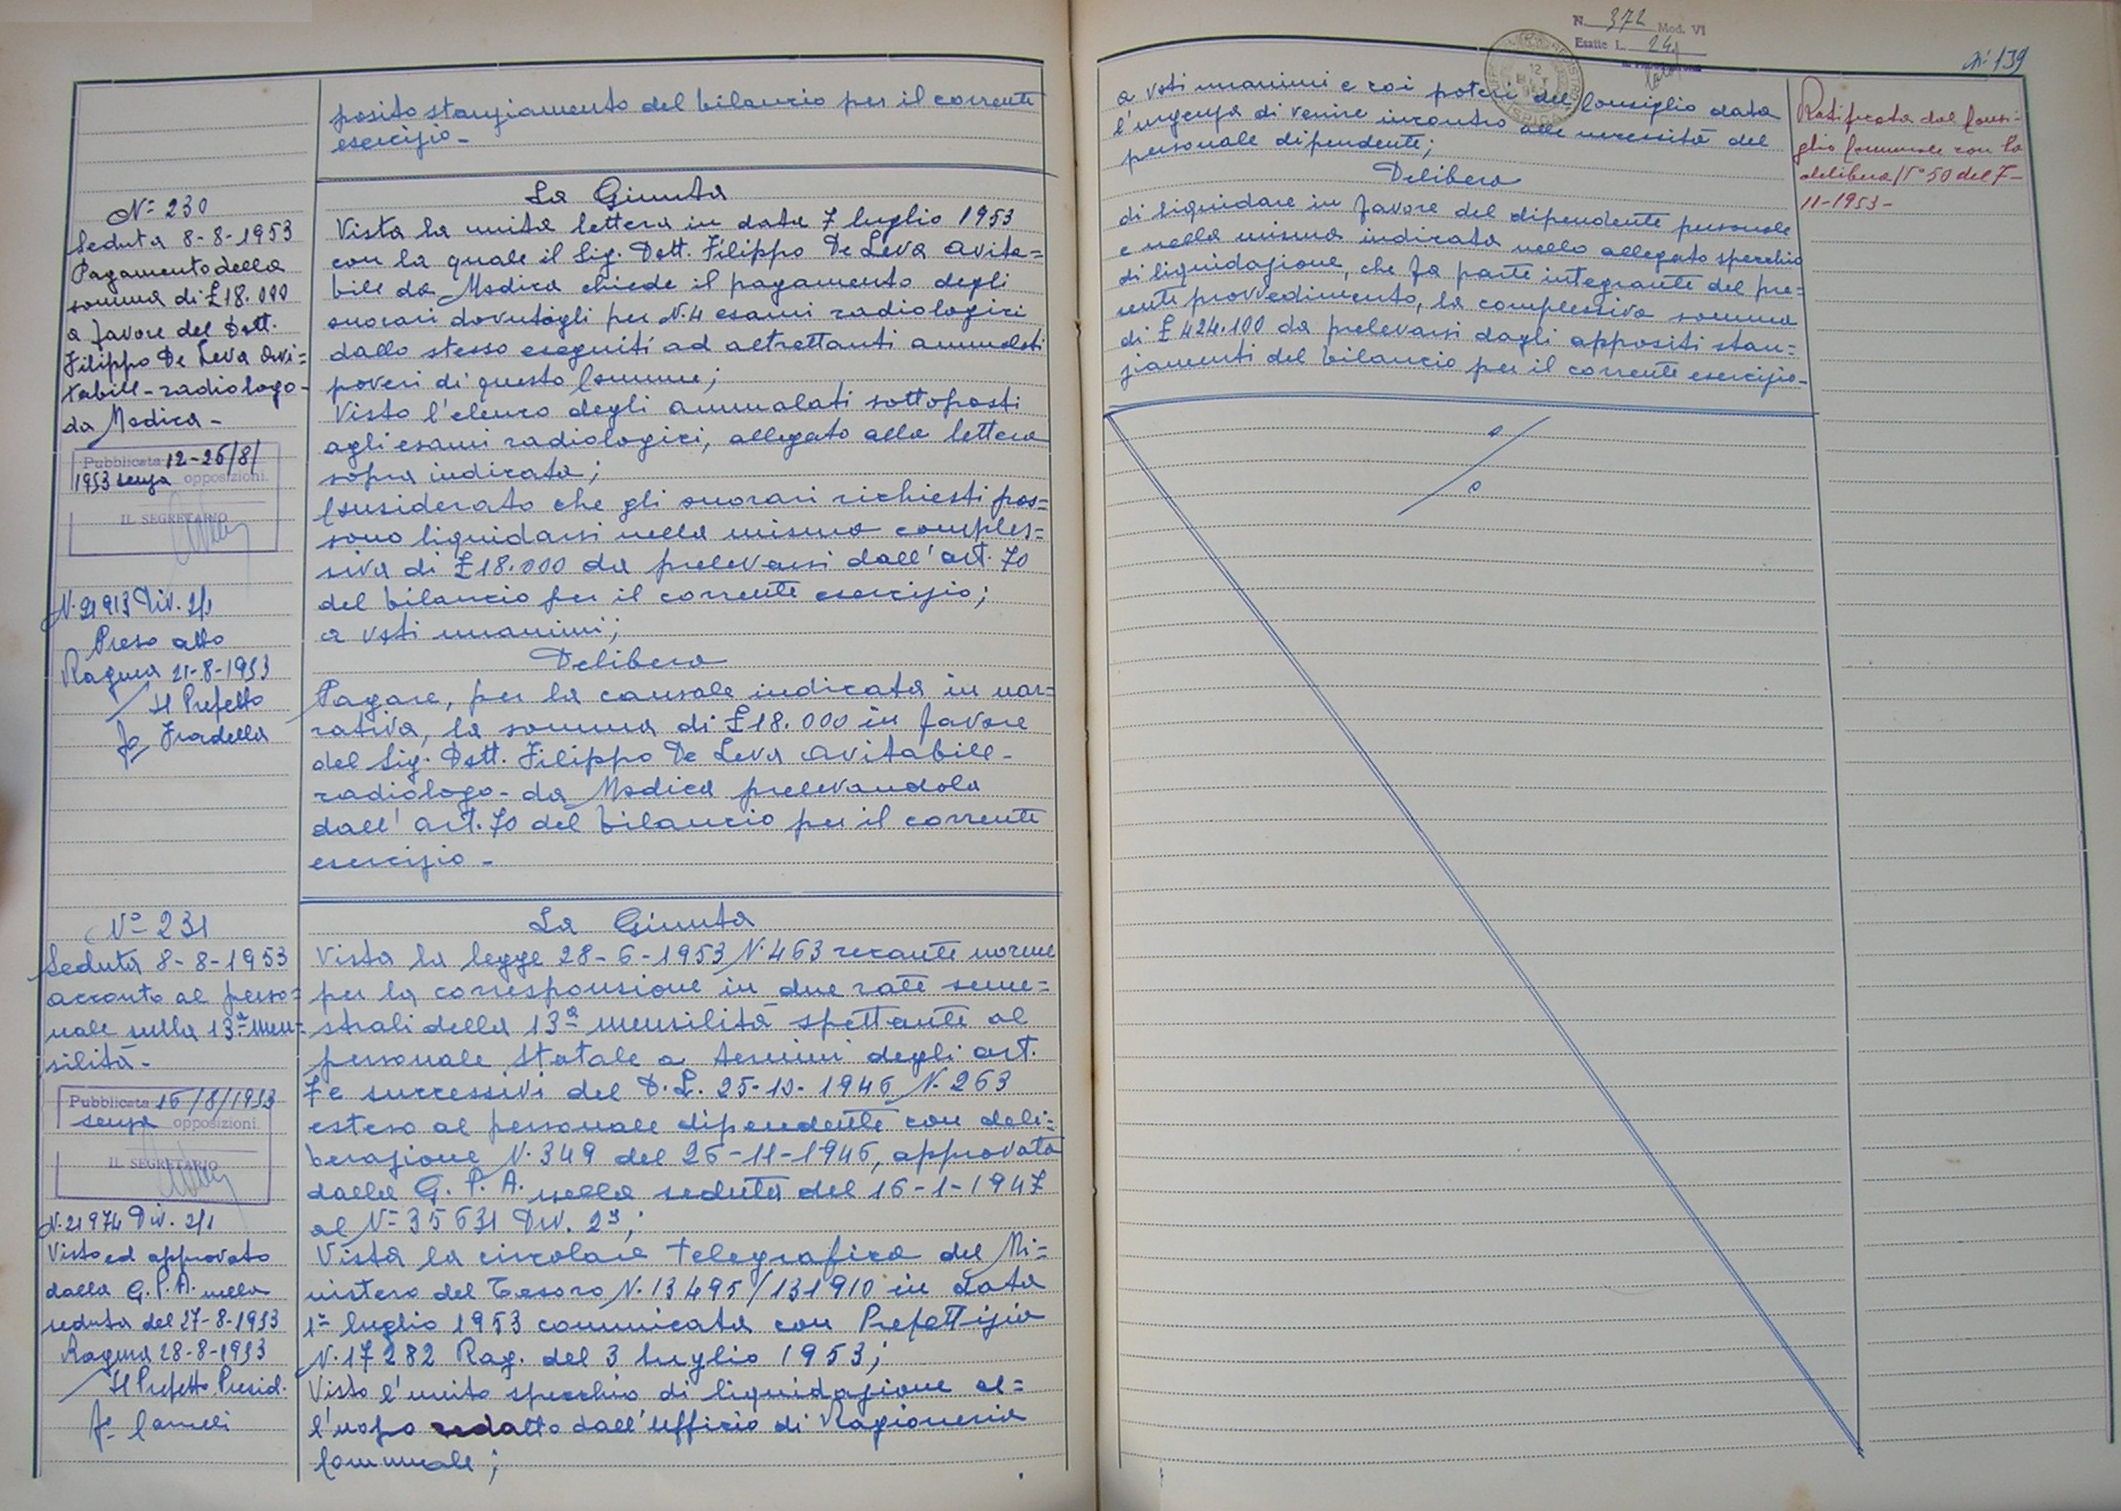 posito stanziamento del bilancio per il corrente
esercizio -
N= 230
Seduta 8-8-1953
Pagamento della
somma di £18.000
a favore del Dott.
Filippo De Leva Avi=
tabile - radiologo -
da Modica -
Pubblicata 12-26/8/
1953 senza opposizioni.
IL SEGRETARIO
N. 21913 Div. 2/1
Preso atto
Ragusa 21-8-1953
Il Prefetto
Fo Fradella
La Giunta
Vista la unita lettera in data 7 luglio 1953
con la quale il Sig. Dott. Filippo De Leva Avita=
bile da Modica chiede il pagamento degli
onorari dovutogli per N. 4 esami radiologici
dallo stesso eseguiti ad altrettanti ammalati
poveri di questo Comune;
Visto l'elenco degli ammalati sottoposti
agli esami radiologici, allegato alla lettera
sopra indicata;
Considerato che gli onorari richiesti pos=
sono liquidarsi nella misura comples=
siva di £18.000 da prelevarsi dall'art. 70
del bilancio per il corrente esercizio;
a voti unanimi;
Delibera
Pagare, per la causale indicata in nar=
rativa, la somma di £18.000 in favore
del Sig. Dott. Filippo De Leva Avitabile -
radiologo - da Modica prelevandola
dall'art. 70 del bilancio per il corrente
esercizio -
N= 231
Seduta 8-8-1953
acconto al perso=
nale sulla 13a men=
silità -
Pubblicata 16/8/1953
senza opposizioni.
IL SEGRETARIO
N. 21974 Div. 2/1
Visto ed approvato
dalla G.P.A. nella
seduta del 27-8-1953
Ragusa 28-8-1953
Il Prefetto Presid.
Fo
La Giunta
Vista la legge 28-6-1953 N. 463 recante norme
per la corresponsione in due rate seme=
strali della 13a mensilità spettante al
personale statale a termini degli art.
7 e successivi del D.L. 25-10-1946 N. 263
esteso al personale dipendente con deli=
berazione N. 349 del 26-11-1946, approvata
dalla G.P.A. nella seduta del 16-1-1947
al N= 35631 Div. 2a;
Vista la circolare telegrafica del Mi=
nistero del Tesoro N. 13495/131910 in data
1= luglio 1953 comunicata con Prefettizia
N. 17282 Rag. del 3 luglio 1953;
Visto l'unito specchio di liquidazione al=
l'uopo redatto dall'Ufficio di Ragioneria
Comunale;
N. 372 Mod. VI
Esatte L. 24
N= 139
a voti unanimi e coi poteri del Consiglio data
l'urgenza di venire incontro alle necessità del
personale dipendente;
Delibera
di liquidare in favore del dipendente personale
e nella misura indicata nello allegato specchio
di liquidazione, che fa parte integrante del pre=
sente provvedimento, la complessiva somma
di £ 424.100 da prelevarsi dagli appositi stan=
ziamenti del bilancio per il corrente esercizio -
Ratificata dal Consi=
glio Comunale con la
delibera N° 50 del 7-
11-1953 -